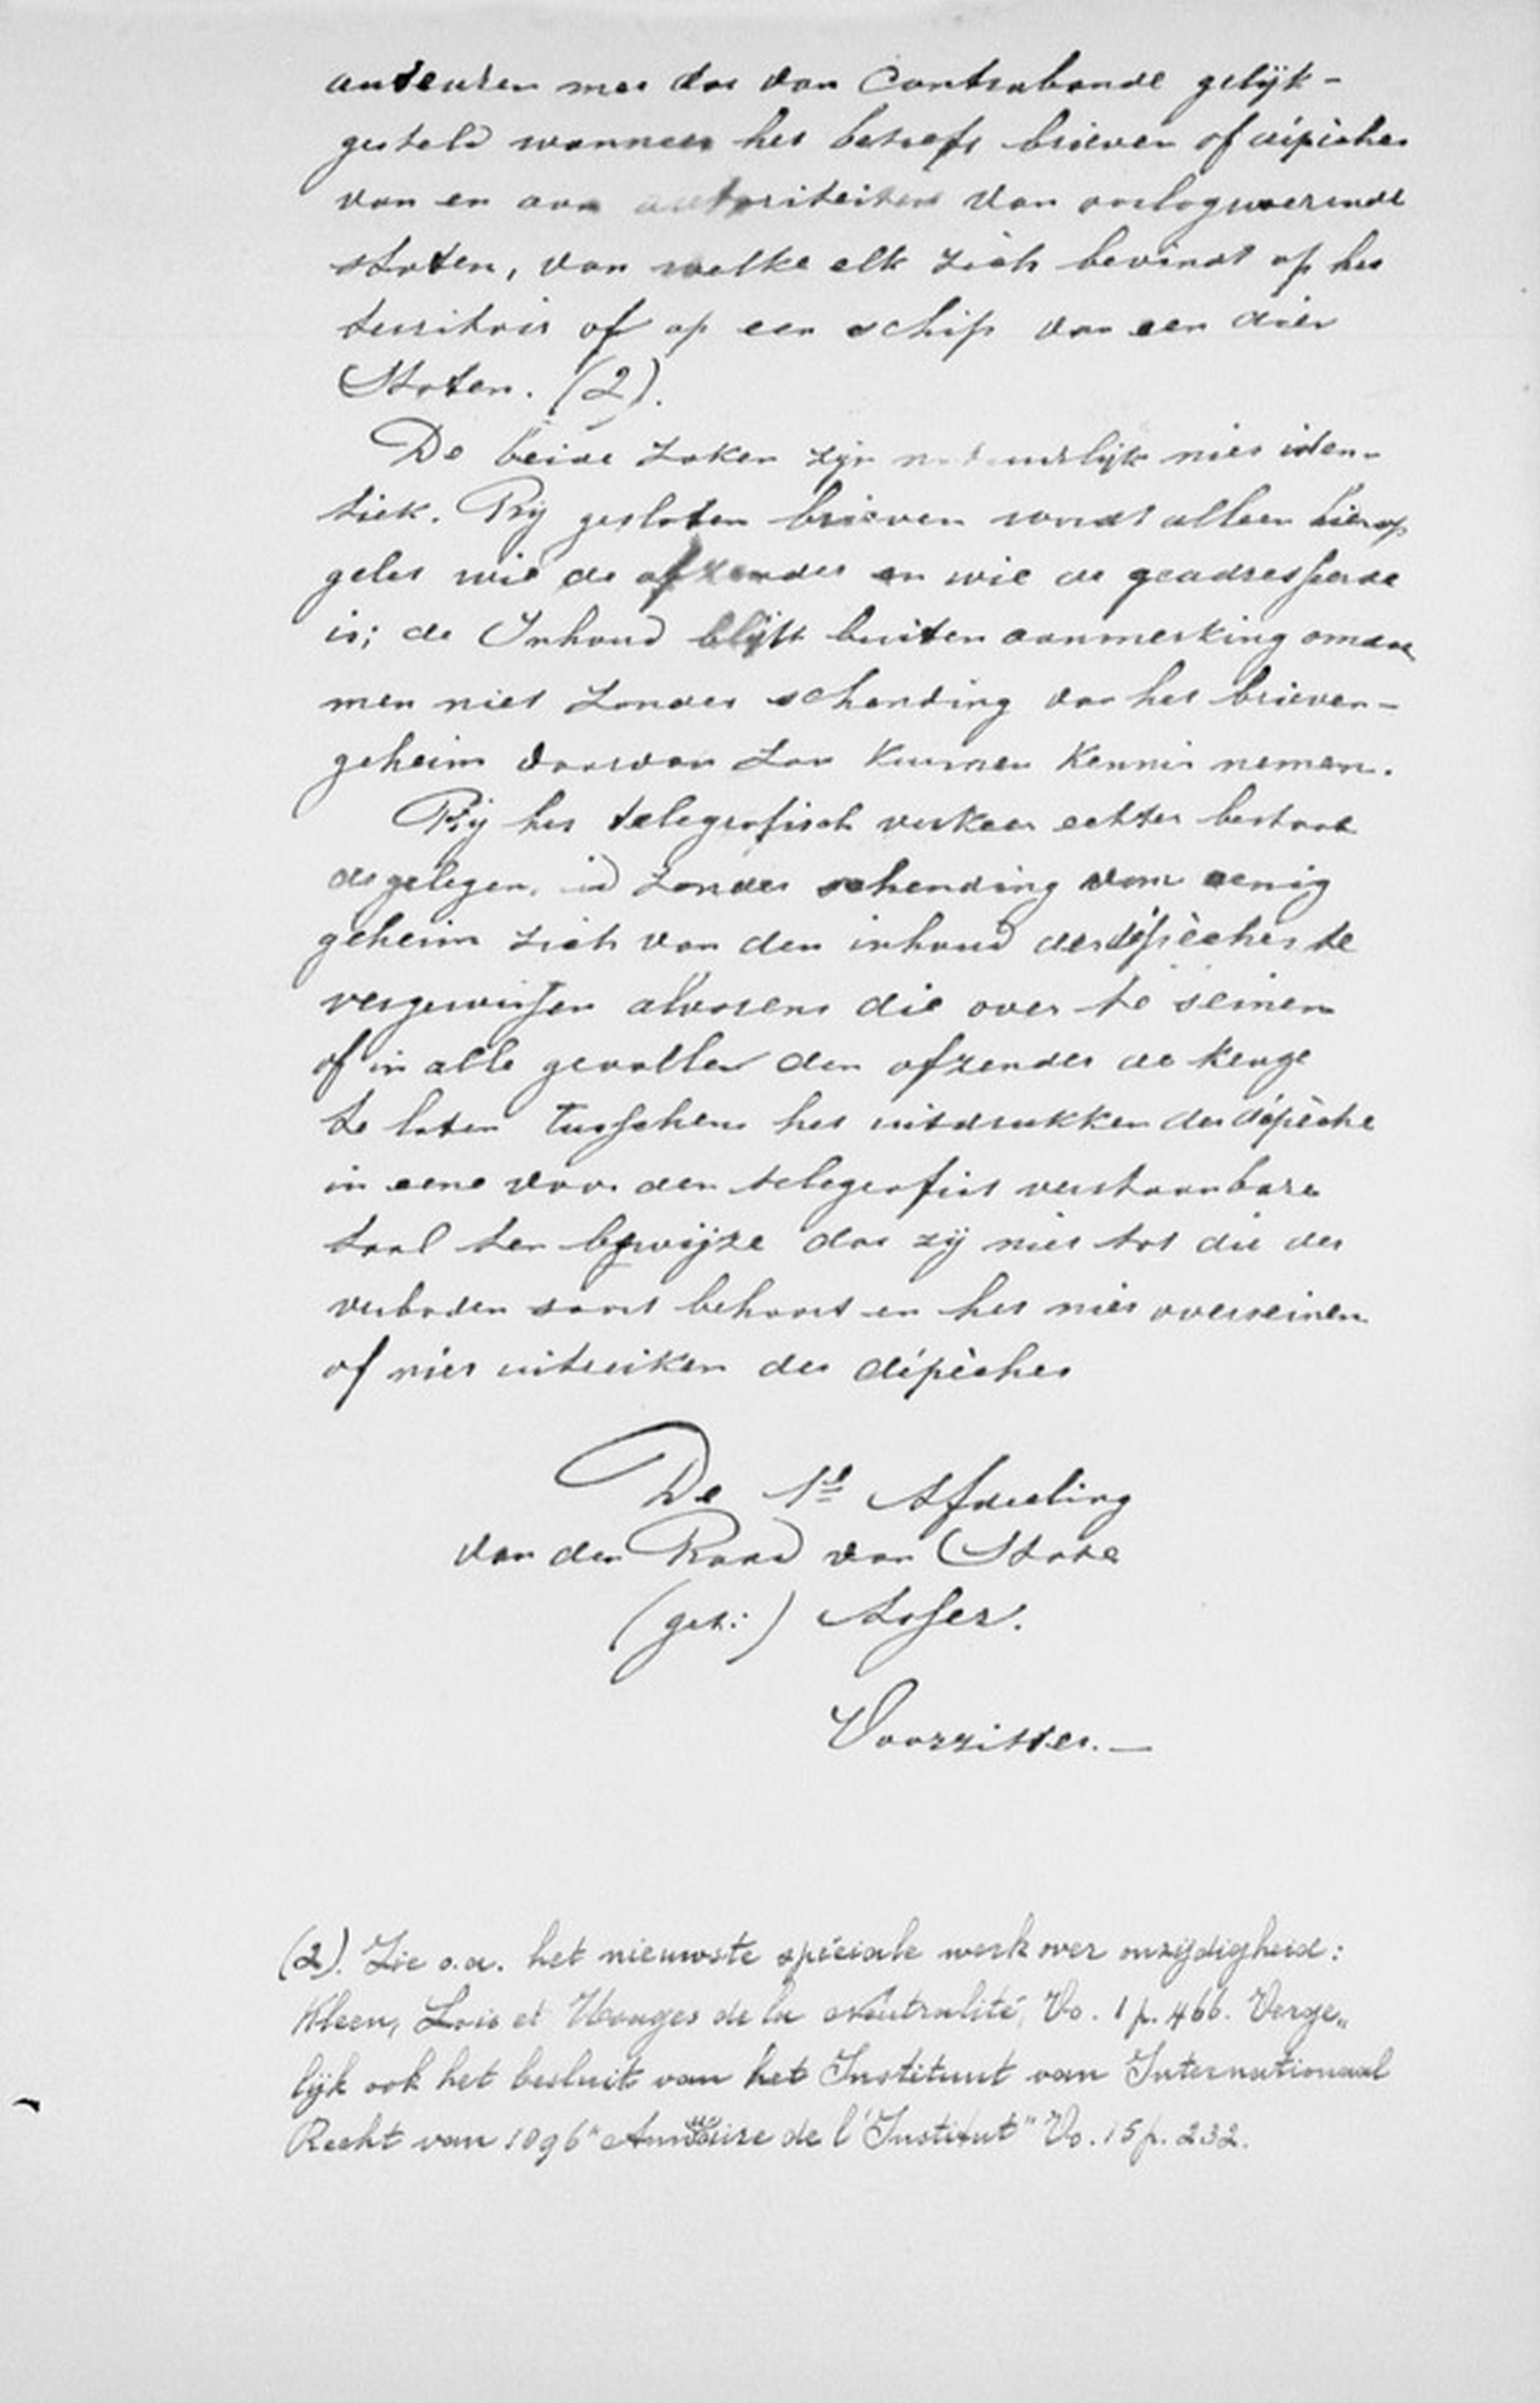 auteurs met dat van Contrabande gelijk-
gesteld wanneer het betreft brieven of dépêches
van en aan autoriteiten van oorlogvoerende
staten, van welke elk zich bevindt op het
territoir of op een schip van een dier
Staten. (2).
De beide zaken zijn natuurlijk niet iden-
tiek. Bij gesloten brieven wordt alleen hierop
gelet wie de afzender en wie de geadresseerde
is; de Inhoud blijft buiten aanmerking omdat
men niet zonder schending van het brieven-
geheim daarvan zou kunnen kennis nemen.
Bij het telegrafisch verkeer echter bestaat
de gelegenheid zonder schending van eenig
geheim zich van den inhoud der dépêches te
vergewissen alvorens die over te seinen
of in alle gevallen den afzender de keuze
te laten tusschen het uitdrukken der dépêche
in eene voor den telegrafist verstaanbare
taal ten bewijze dat zij niet tot die der
verboden soort behoort en het niet overseinen
of niet uitreiken der dépêches
De 1e Afdeeling
van den Raad van State
(get:) Asser.
Voorzitter.—
(2). Zie o.a. het nieuwste speciale werk over onzijdigheid:
Kleen, Lois et Usages de la Neutralité, Vo. 1 p. 466. Verge„
lijk ook het besluit van het Instituut van Internationaal
Recht van 1896 "Annuaire de l'Institut" Vo. 15 p. 232.